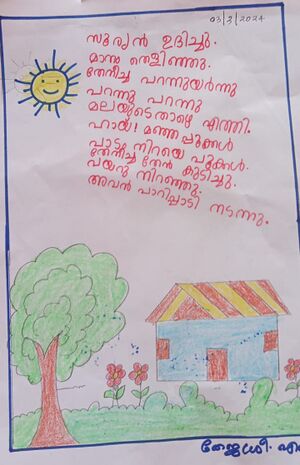 03/2/2024
സൂര്യൻ ഉദിച്ചു.
മാനം തെളിഞ്ഞു.
തേനീച്ച പറന്നുയർന്നു
പറന്നു പറന്നു
മലയുടെതാഴെ എത്തി.
ഹായ്! മഞ്ഞപ്പൂക്കൾ
പാടം നിറയെ പൂക്കൾ.
തേനീച്ച തേൻ കുടിച്ചു.
വയറു നിറഞ്ഞു.
അവൻ പാറിപ്പാടി നടന്നു.
തേജശ്രീ. എ